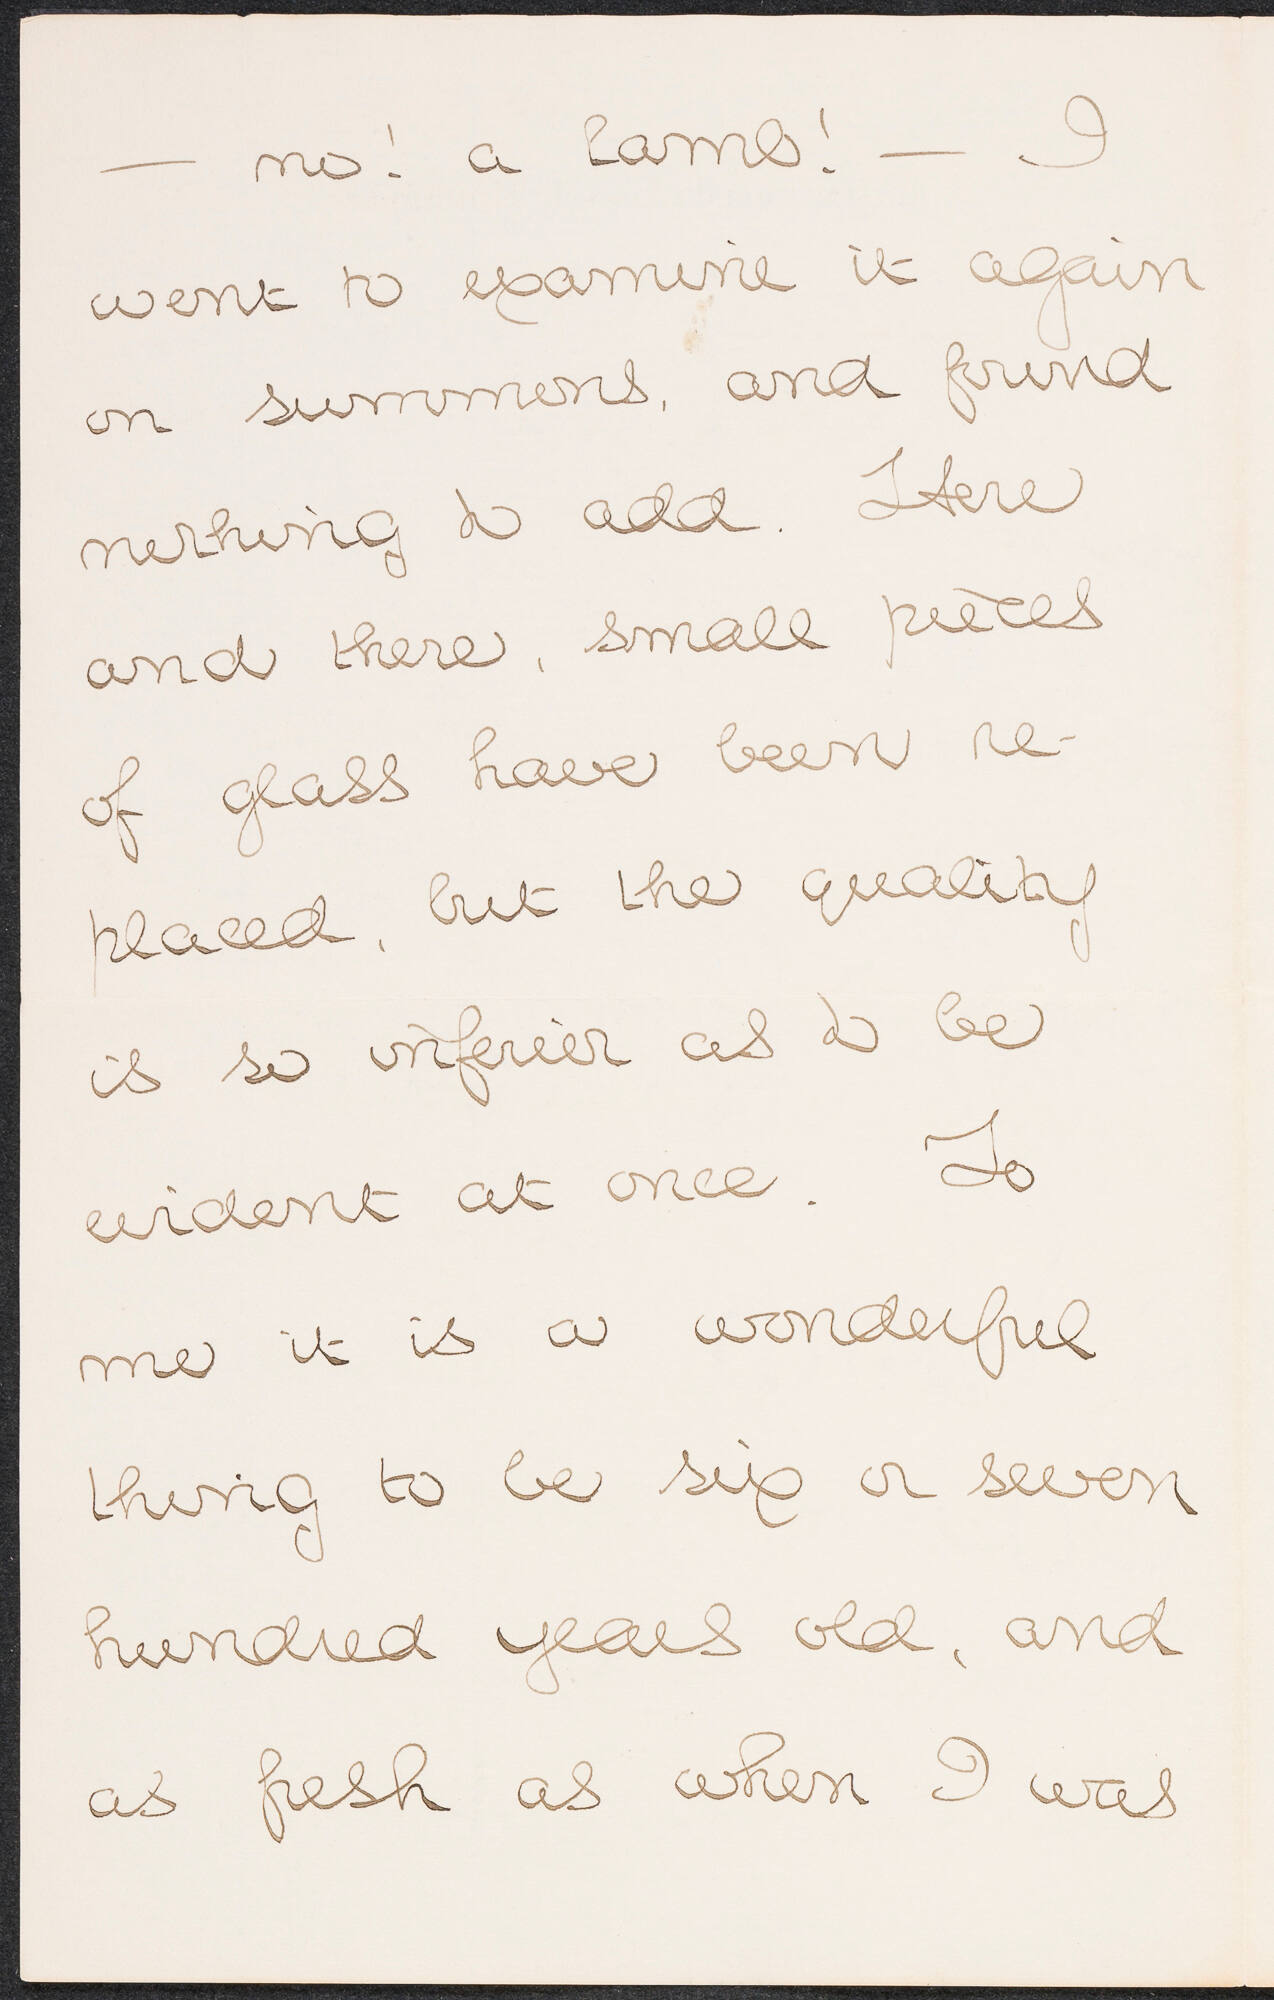 — no! a lamb! — I
went to examine it again
on summons, and found
nothing to add. Here
and there, small pieces
of glass have been re-
placed, but the quality
is so inferior as to be
evident at once. To
me it is a wonderful
thing to be six or seven
hundred years old, and
as fresh as when I was